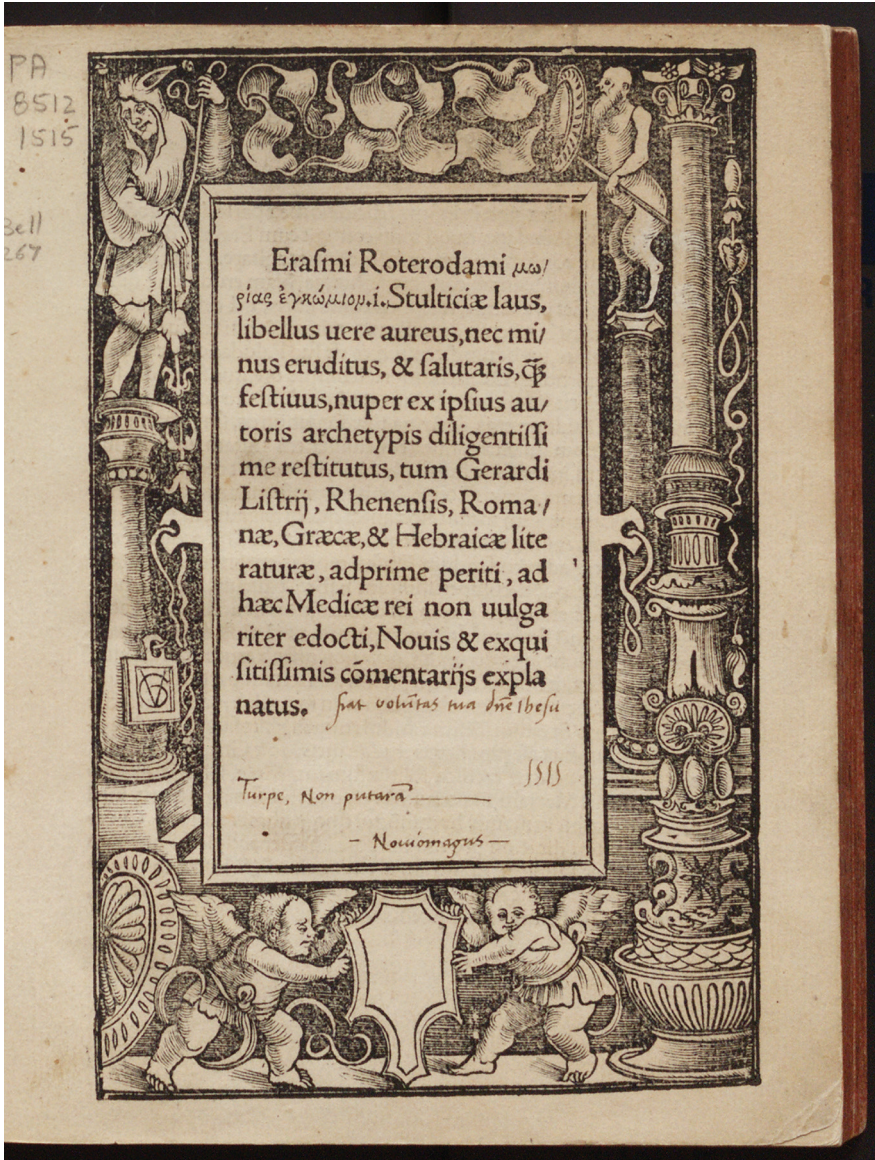 PA
8512
1515
Bell
267
Eraſmi Roterodami μω/
ρίας ἐγκώμιον.i. Stulticiæ laus,
libellus uere aureus, nec mi/
nus eruditus, & ſalutaris, ꝗ̃
feſtiuus, nuper ex ipſius au/
toris archetypis diligentiſſi
me reſtitutus, tum Gerardi
Liſtrij, Rhenenſis, Roma/
næ, Græcæ, & Hebraicæ lite
raturæ, adprime periti, ad
hæc Medicæ rei non uulga
riter edocti, Nouis & exqui
ſitiſſimis cōmentarijs expla
natus. fiat volūtas tua dn̄e Ihesu
1515
Turpe, Non putarā
- Nouiomagus -
VG